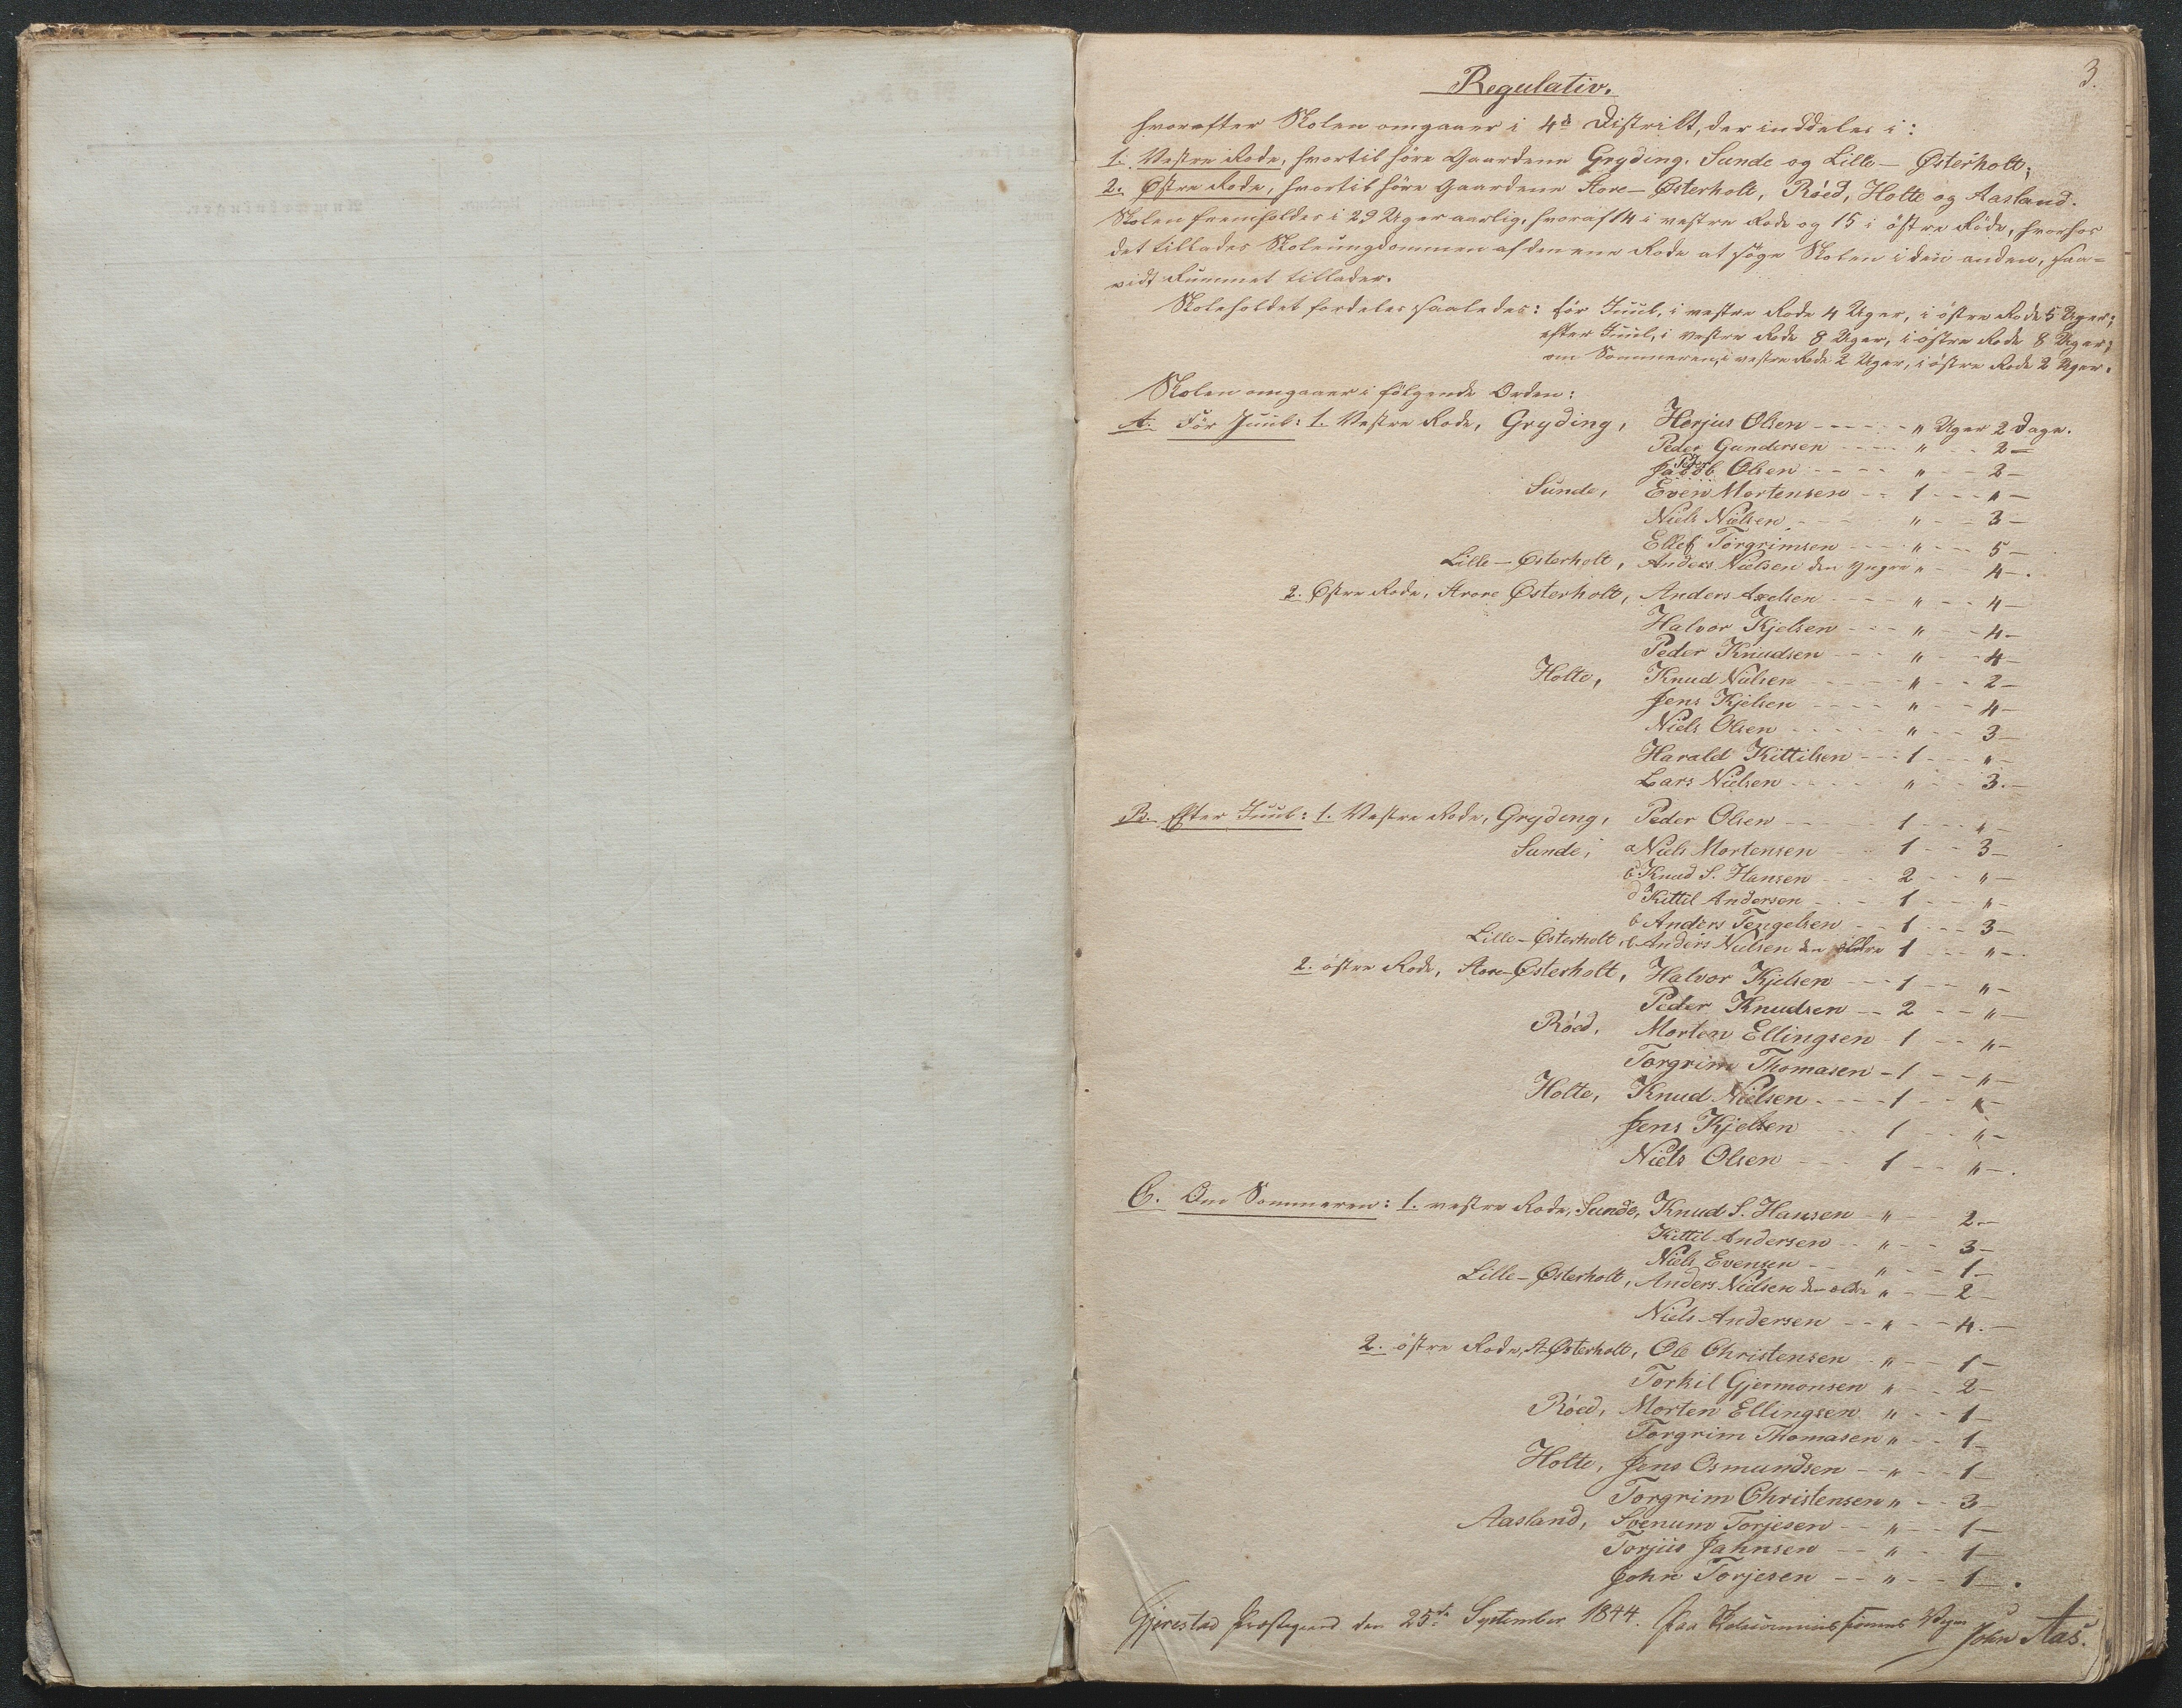 3.
Regulativ.
hvorefter Skolen omgaaer i 4de Distrikt, der inddeles i:
1. Vestre Rode, hvortil høre Gaardene Gryding, Sunde og Lille-Østerholt;
2. Østre Rode, hvortil høre Gaardene Store-Østerholt, Röed, Holte og Aasland.
Skolen fremholdes i 29 Uger aarlig, hvoraf 14 i vestre Rode og 15 i östre Rode, hvorhos
det tillades Skoleungdommen af den ene Rode at søge Skolen i den anden, saa-
vidt Rummet tillader.
Skoleholdet fordeles saaledes: för Juul, i vestre Rode 4 Uger, i östre Rode 5 Uger;
efter Juul, i vestre Rode 8 Uger, i östre Rode 8 Uger;
om Sommeren, i vestre Rode 2 Uger, i östre Rode 2 Uger.
Skolen omgaaer i fölgende Orden:
A. För Juul: 1. Vestre Rode, Gryding, Herjus Olsen - - - - " Uger 2 Dage.
Peder Gundersen - - - - " - - 2 -
Peder
Jacob Olsen - - - - " - - 2 -
Sunde, Even Mortensen - - 1 - - - " -
Niels Nielsen - - - - " - - 3 -
Ellef Torgrimsen - - - - " - - 5 -
Lille-Østerholt, Anders Nielsen den yngre " - - 4 -.
2. Østre Rode, Store Østerholt, Anders Axelsen - - - - " - - 4 -
Halvor Kjelsen - - - " - - 4 -
Peder Knudsen - - - " - - 4 -
Holte, Knud Nielsen - - - - " - - 2 -
Jens Kjelsen - - - - " - - 4 -
Niels Olsen - - - - " - - 3 -
Harald Kittilsen - - - 1 - - - " -
Lars Nielsen - - - - " - - 3. -
B. Efter Juul: 1. Vestre Rode, Gryding, Peder Olsen - - - - 1 - - - " -
Sunde, a Niels Mortensen - - 1 - - 3 -
c Knud S. Hansen - - - 2 - - " -
d Kittil Andersen - - - 1 - - " -
b Anders Tengelsen - - 1 - - - 3 -
Lille-Østerholt, Anders Nielsen den ældre 1 - - - " -.
2. östre Rode, Store-Østerholt, Halvor Kjelsen - - - 1 - - " -
Peder Knudsen - - 2 - - " -
Röed, Morten Ellingsen - 1 - - " -
Torgrim Thomasen - 1 - - " -
Holte, Knud Nielsen - - - - 1 - - " -
Jens Kjelsen - - 1 - - " -
Niels Olsen - - - 1 - - " -.
C. Om Sommeren: 1. vestre Rode, Sunde, Knud S. Hansen - " - - 2. -
Kittil Andersen - - " - - 3 -
Niels Evensen - - " - - - 1 -
Lille-Østerholt, Anders Nielsen den ældre " - - 2 -
Niels Andersen - - " - - 4. -
2. östre Rode, St. Østerholt, Ole Christensen - " - - 1 -
Torkil Gjermonsen " - - 2 -
Röed, Morten Ellingsen " - - 1 -
Torgrim Thomasen " - - 1 -
Holte, Jens Osmundsen - - " - - 1 -
Torgrim Christensen " - - 3 -
Aasland, Svenum Torjesen - - " - - 1 -
Torjus Jahnsen - - " - - 1 -
John Torjesen - - " - - 1 -.
Gjerestad Præstegaard den 25de September 1844. Paa Skolecommissionens Vegne
John Aas.